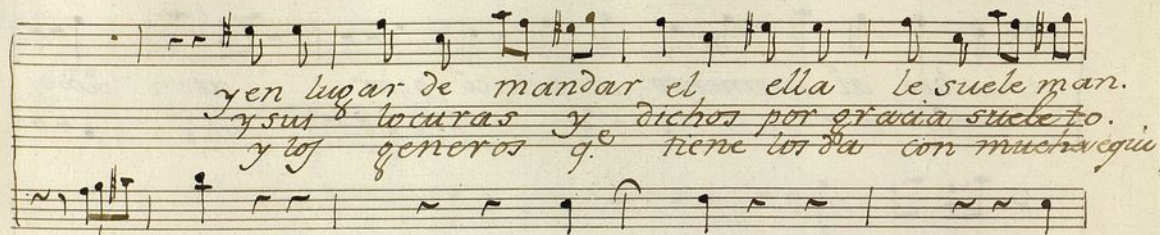 y en lugar de mandar el ella le suele man.
y sus locuras y dichos por gracia suele to.
y los generos q.e tiene los da con mucha equi